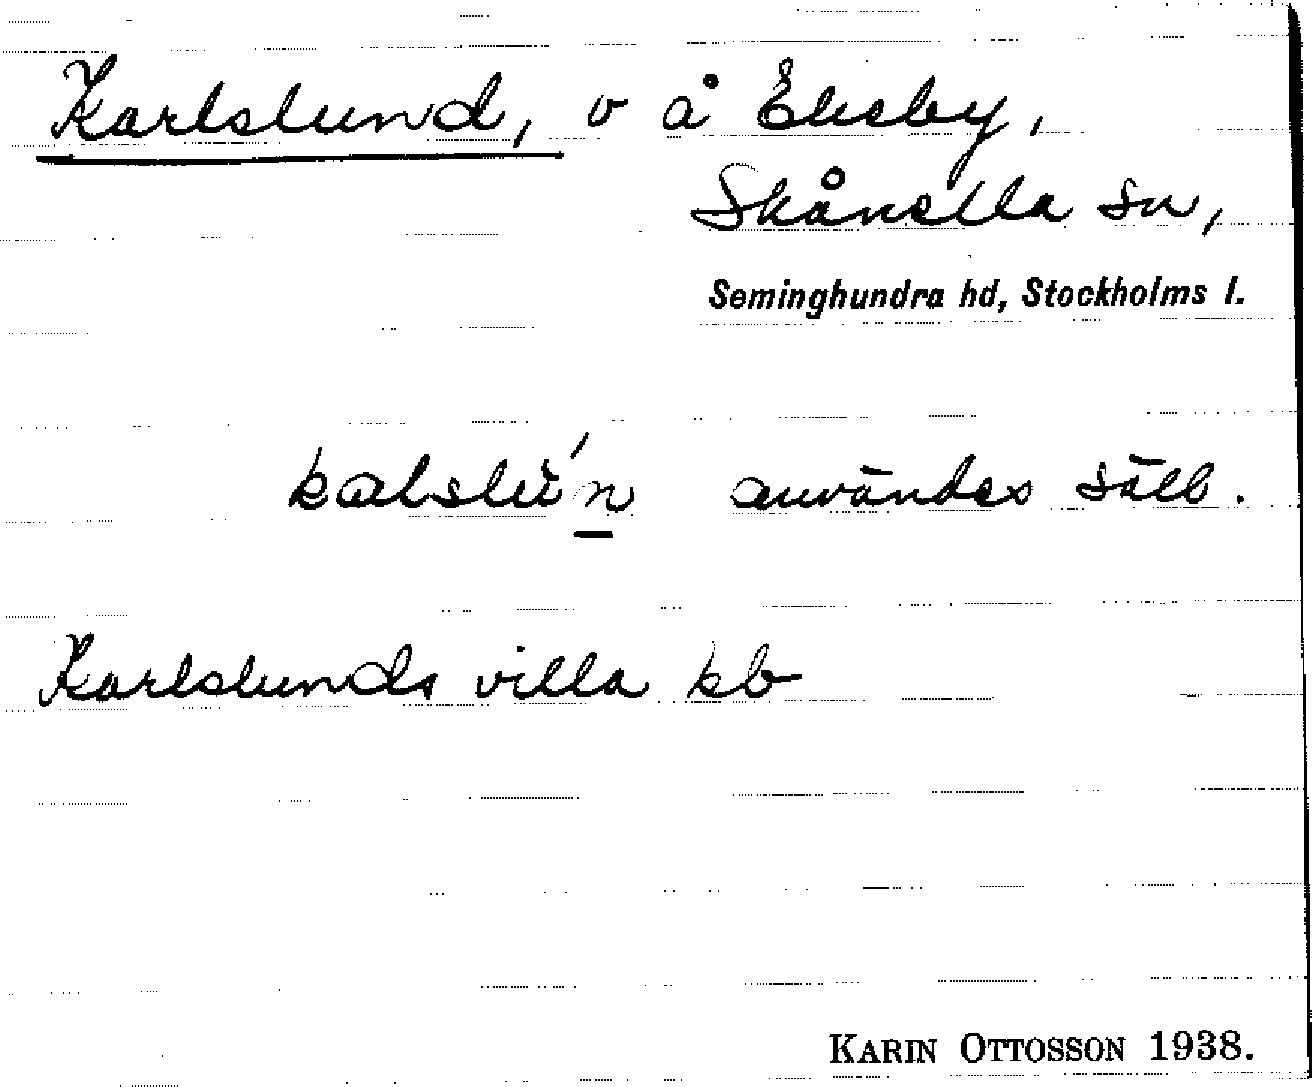 Karlslund, v å Ekeby,
Skånella sn,
Seminghundra hd, Stockholms l.
kalslù´n användes säll.
Karlslunds villa kb
KARIN OTTOSSON 1938.